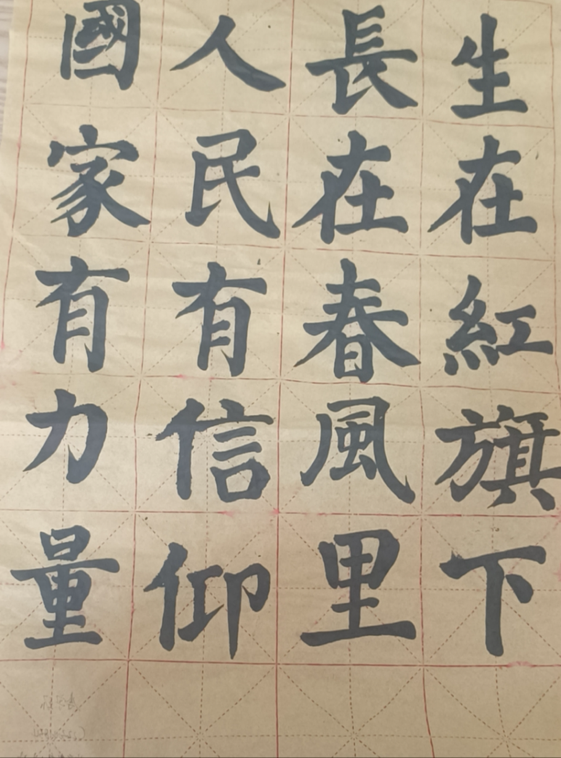 生在紅旗下
長在春風里
人民有信仰
國家有力量